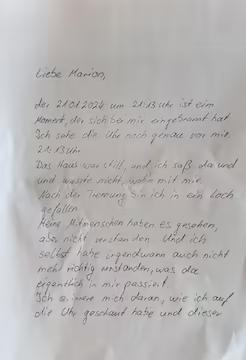 Liebe Marion,
der 21.01.2024 um 21:13 Uhr ist ein
Moment, der sich bei mir eingebrannt hat
Ich sehe die Uhr noch genau vor mir.
21:13 Uhr
Das Haus war still, und ich saß da und
und wusste nicht, wohin mit mir.
Nach der Trennung bin ich in ein Loch
gefallen.
Meine Mitmenschen haben es gesehen,
aber nicht verstanden. Und ich
selbst habe irgendwann auch nicht
mehr richtig verstanden, was da
eigentlich in mir passiert.
Ich erinnere mich daran, wie ich auf
die Uhr geschaut habe und dieser